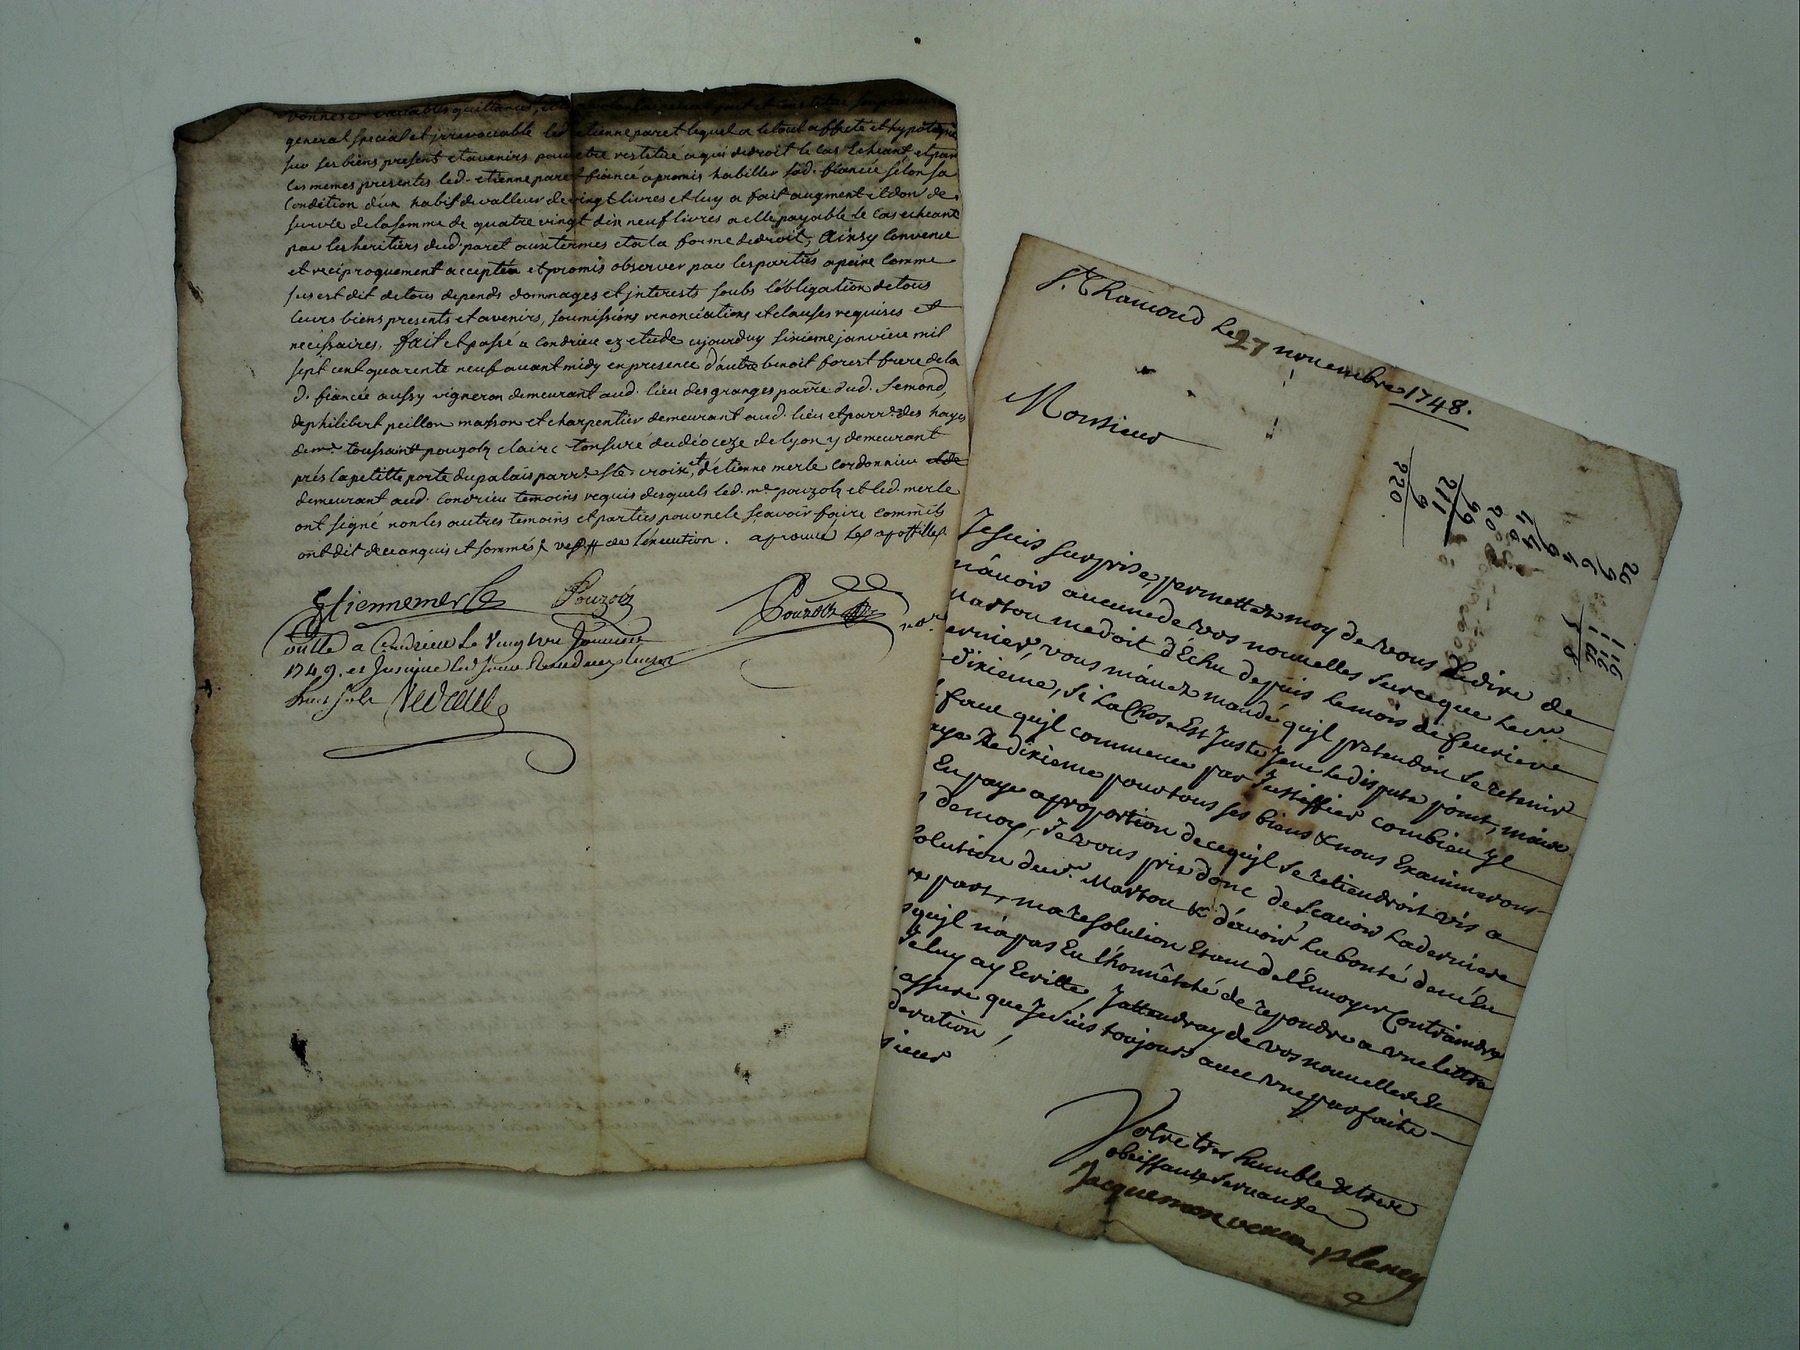 donner et vallables quittances,
general special et irrevocable led. etienne paret lequel a le tout affecté et hypotequé
sur ses biens present et avenirs pour etre restitué a qui de droit le cas echeant et par
les memes presentes led. etienne paret fiancé a promis habiller sad. fiancée selon sa
condition d'un habit de valleur de vingt livres et luy a fait augment et don de
survie de la somme de quatre vingt dix neuf livres a elle payable le cas echeant
par les heritiers dud. paret aux termes et a la forme de droit, Ainsy convenu
et reciproquement accepté et promis observer par les parties a peine comme
sus est dit de tous depends dommages et interests soubs l'obligation de tous
leurs biens presents et avenirs, soumissions renonciations et clauses requises et
necessaires. fait et passé a Condrieu ez etude aujourduy sixieme janvier mil
sept cent quarente neuf avant midy en presence d'autre benoit forest frere de la
d. fiancée aussy vigneron demeurant aud. lieu des granges parre dud. Semond,
de philibert peillon masson et charpentier demeurant aud. lieu et parr. des hayes
de mr. toussaint pouzolz clairc tonsuré du dioceze de lyon y demeurant
prés la petitte porte du palais parr. Ste. croix, et d'étienne merle cordonnier
demeurant aud. Condrieu temoins requis desquels led. mr. pouzolz et led. merle
ont signé non les autres temoins et parties pour ne le sçavoir faire comme ils
ont dit de ce enquis et sommés de l'execution. aprouvé les apostilles
Etienne merle Pouzolz Pouzolz
nore
a Condrieu le Vingt Janvier
1749.
Monsieur
St. Chamond Le 27 novembre 1748.
Je suis Surprise, permettez moy de vous Le dire de
n'avoir aucune de vos nouvelles Sur ce que Le Sr.
Marton me doit d'Echu depuis le mois de fevrier
dernier, vous m'avez mandé qu'jl pretendoit Se retenir
dixieme, Si La Chose Est Juste Je ne Le dispute point, mais
faut qu'jl commence par Justiffier combien jl
paye De dixieme pour tous Ses biens & nous Examinerons
En paye a proportion de ce qu'jl Se retiendroit vis a
de moy, Je vous prie donc de Scavoir La derniere
solution du Sr. Marton & d'avoir La bonté de m'en
part, ma resolution Etant de l'Envoyer Contraindre
qu'jl n'a pas Eu l'honnêteté de repondre a une lettre
Je luy ay Ecritte, J'attendray de vos nouvelles &
assure que Je suis toujours avec une parfaite
deration,
sieur
Votre tres humble & tres
obeissante Servante
Jacquemon veuve pleney
220